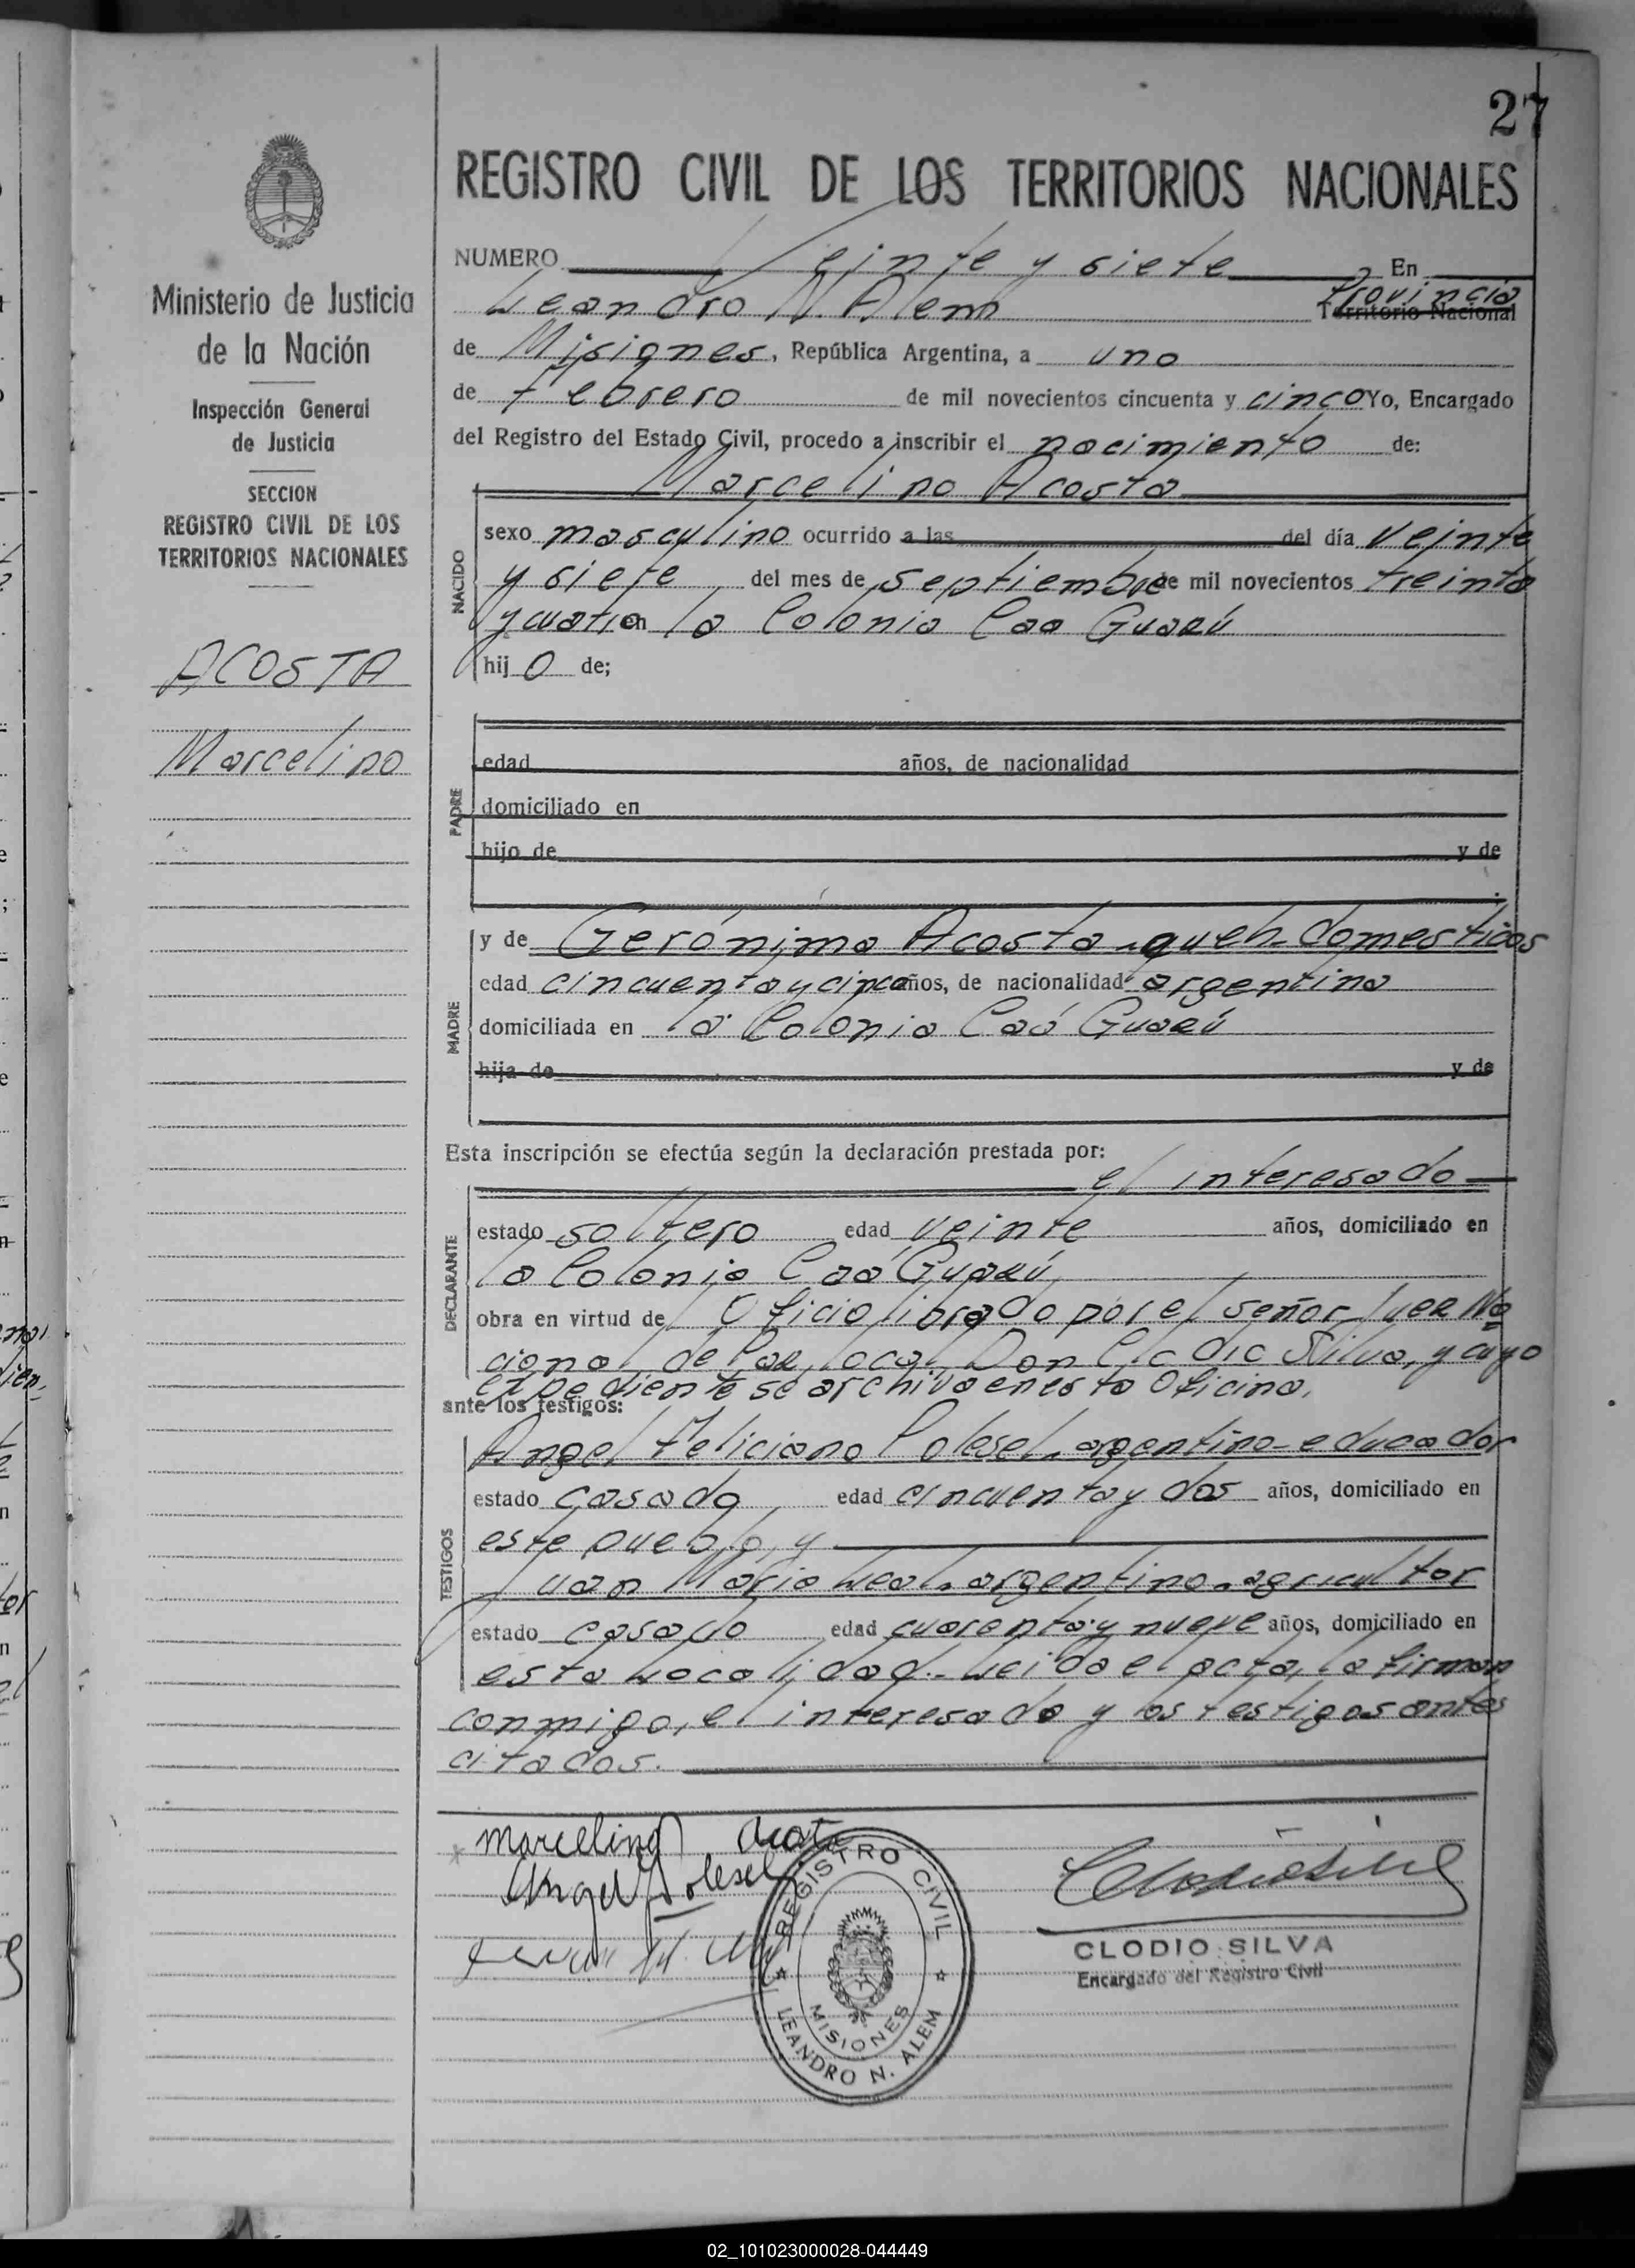 27
REGISTRO CIVIL DE LOS TERRITORIOS NACIONALES
NUMERO Veinte y siete En
Leandro N. Alem Provincia Territorio Nacional
de Misiones, República Argentina, a uno
de febrero de mil novecientos cincuenta y cinco Yo, Encargado
del Registro del Estado Civil, procedo a inscribir el nacimiento de:
Marcelino Acosta
NACIDO
sexo masculino ocurrido a las del día veinte
y siete del mes de septiembre de mil novecientos treinta
y cuatro en la Colonia Caa Guazú
hijo de;
PADRE
edad años, de nacionalidad
domiciliado en
hijo de y de
MADRE
y de Gerónima Acosta - queh. domesticos
edad cincuenta y cinco años, de nacionalidad argentina
domiciliada en la Colonia Caá Guazú
hija de y de
Esta inscripción se efectúa según la declaración prestada por:
el interesado
DECLARANTE
estado soltero edad veinte años, domiciliado en
la Colonia Caá Guazú,
obra en virtud de Oficio librado por el señor Juez Na
cional de Paz, local, Don Clodio Silva, y cuyo
expediente se archiva en esta Oficina.
ante los testigos:
TESTIGOS
Angel Feliciano Polesel - argentino - educador
estado casado edad cincuenta y dos años, domiciliado en
este pueblo, y
Juan Mario Leal - argentino - agricultor
estado casado edad cuarenta y nueve años, domiciliado en
esta Localidad.- Leida el acta, la firman
conmigo, el interesado y los testigos antes
citados.
marcelino Acosta
Angel Polesel
Juan M.
REGISTRO CIVIL
MISIONES
LEANDRO N. ALEM
CLODIO SILVA
Encargado del Registro Civil
Ministerio de Justicia
de la Nación
Inspección General
de Justicia
SECCION
REGISTRO CIVIL DE LOS
TERRITORIOS NACIONALES
ACOSTA
Marcelino
02_101023000028-044449